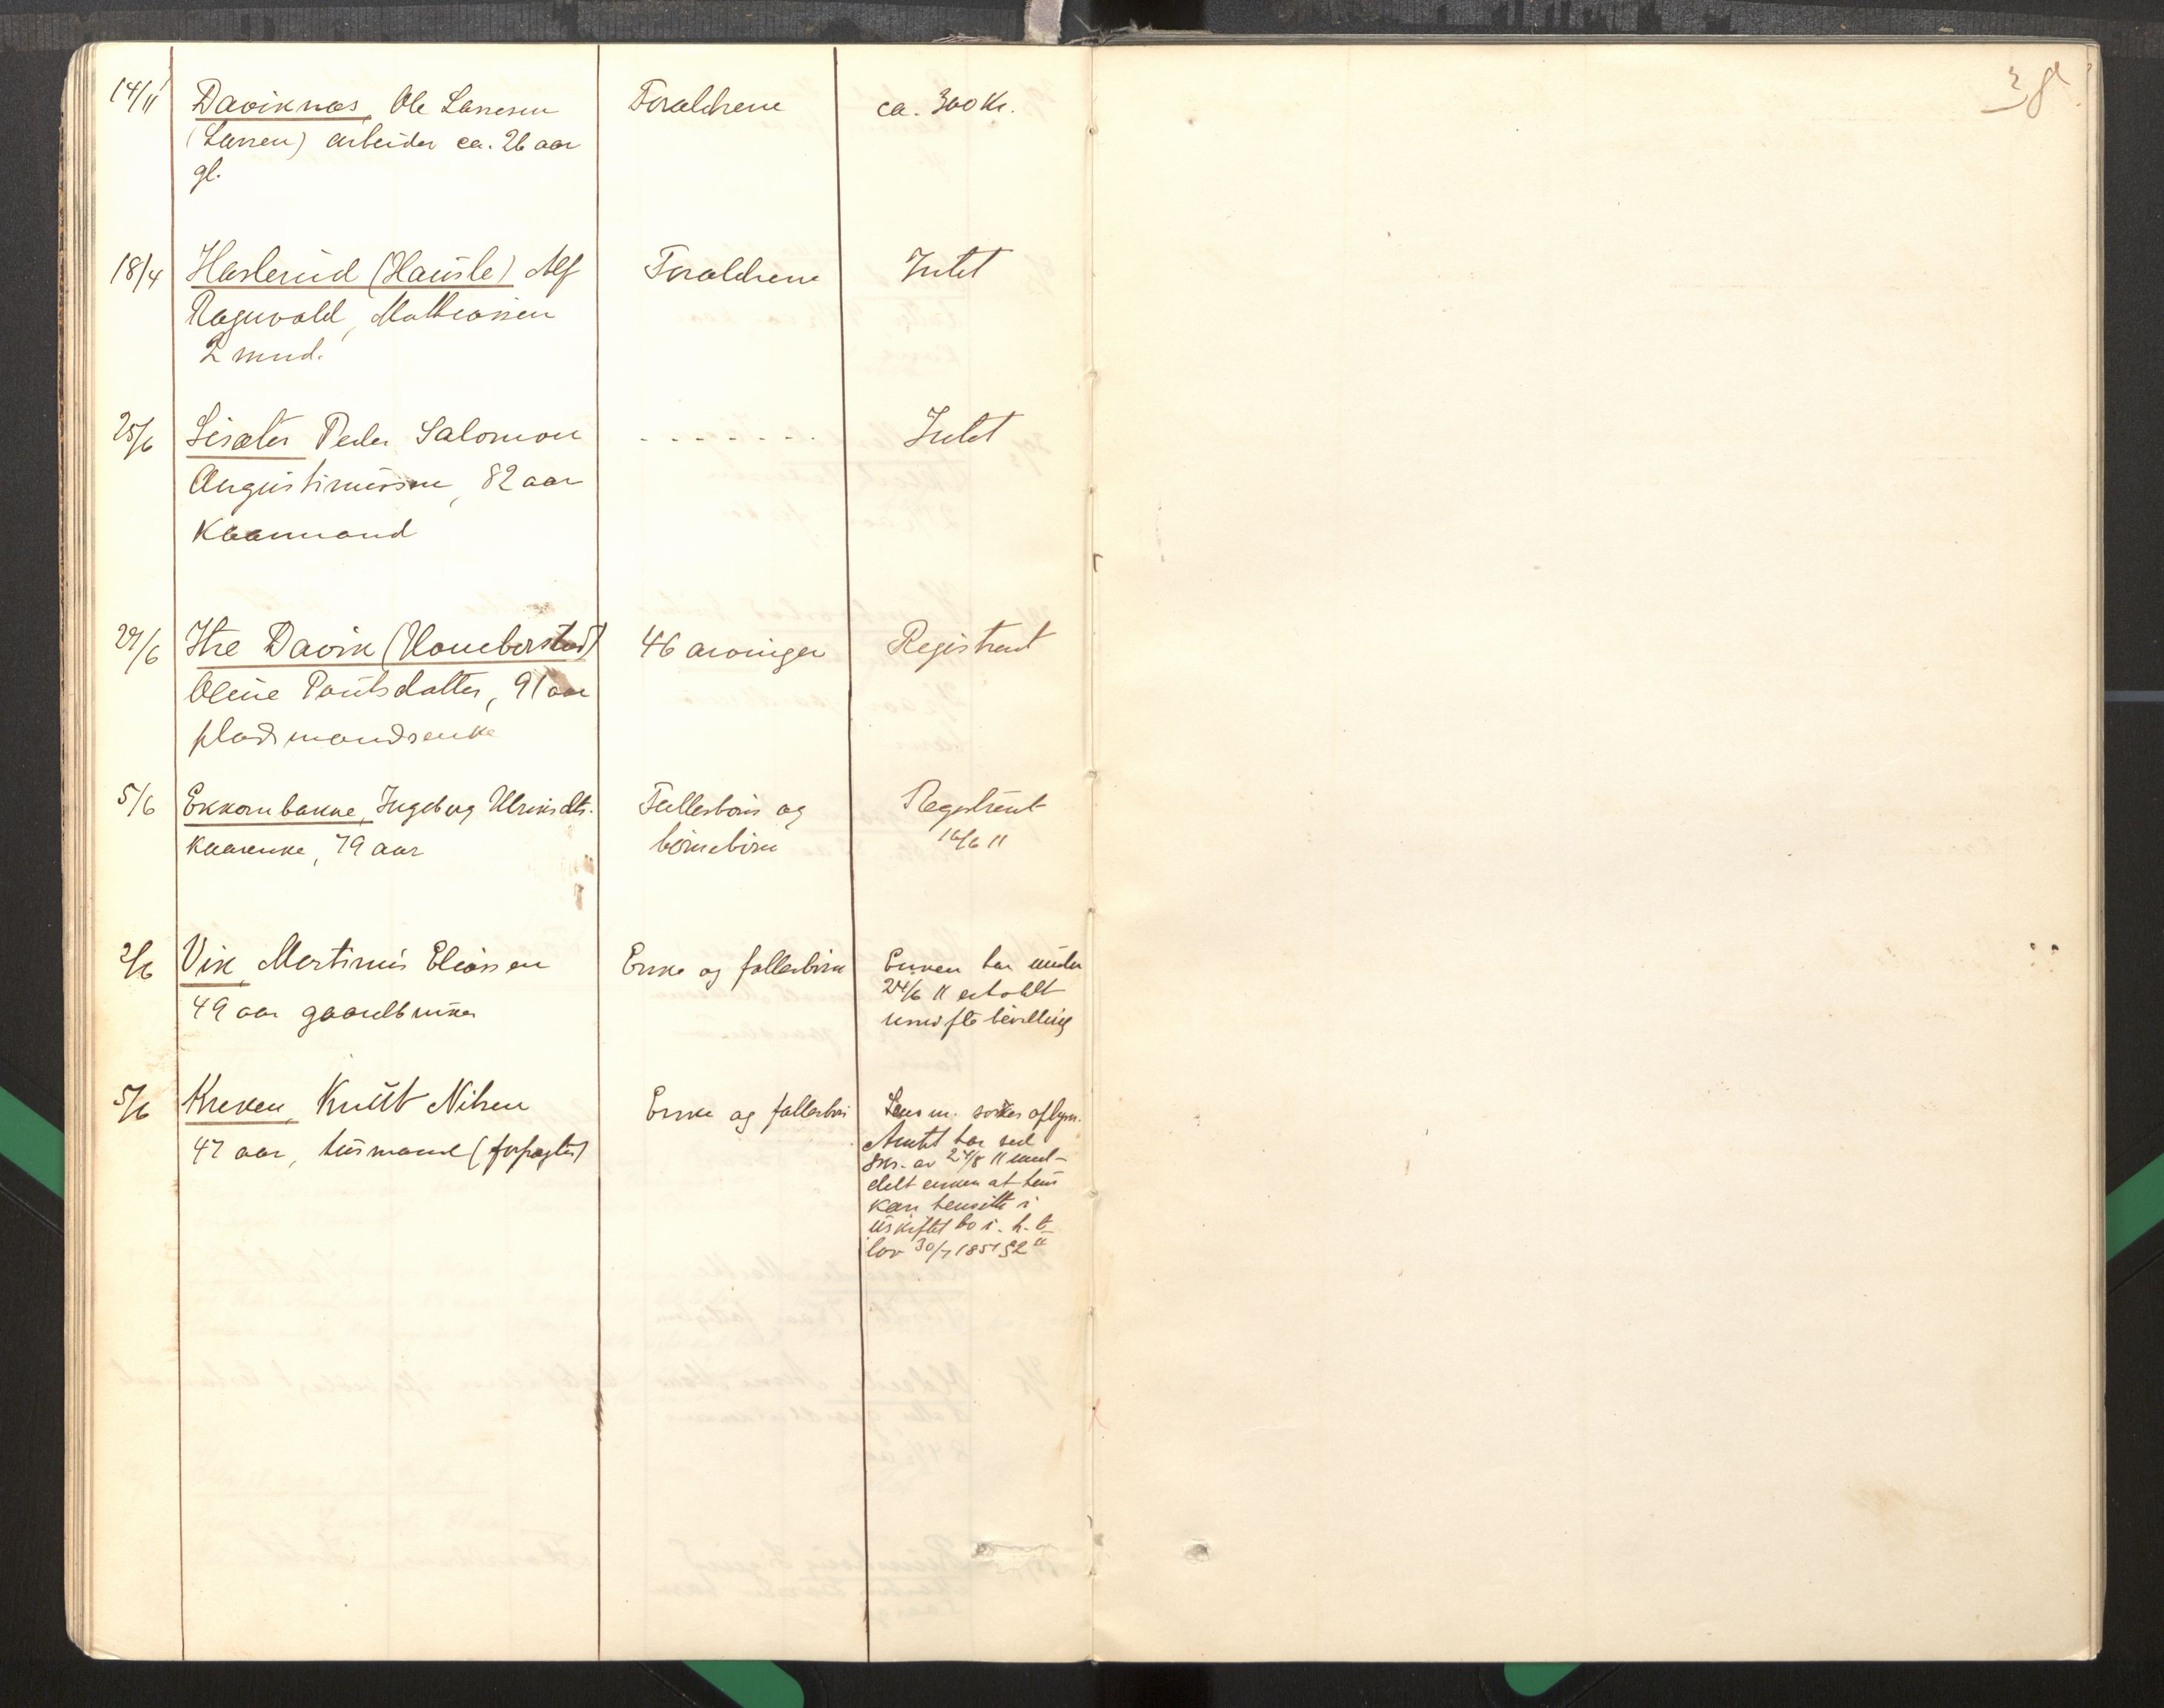 14/11 Daviknæs, Ole Larsen Forældrene ca. 300 Kr.
(Larsen) arbeider ca. 26 aar
gl.
18/4 Haslerud (Hausle) Alf Forældrene Intet
Ragnvald, Mathiassen
2 mnd.
25/6 Lisæter Peder Salomon - - - - - - - Intet
Augustinussen, 82 aar
Kaarmand
29/6 Itre Davik 46 arvinger Registrert
Oline Paulsdatter, 91 aar
pladsmandsenke
5/6 Ekkornbakke, Ingeborg Ulriksdtr. Fællesbörn og Registrert
kaarenke, 79 aar börnebörn 16/6 11
2/6 Vik, Martinus Eliassen Enke og fællesbörn Enken har under
49 aar gaardbruker 24/6 11 erholdt
uskiftebevilling
5/6 Kreken, Knut Nilsen Enke og fællesbörn Lensm. söker oplysn.
47 aar, husmand (forpagter) Amtet har ved
skr. av 24/8 11 med-
delt enken at hun
kan hensitte i
uskiftet bo i. h. t.
lov 30/7 1851 § 2
38